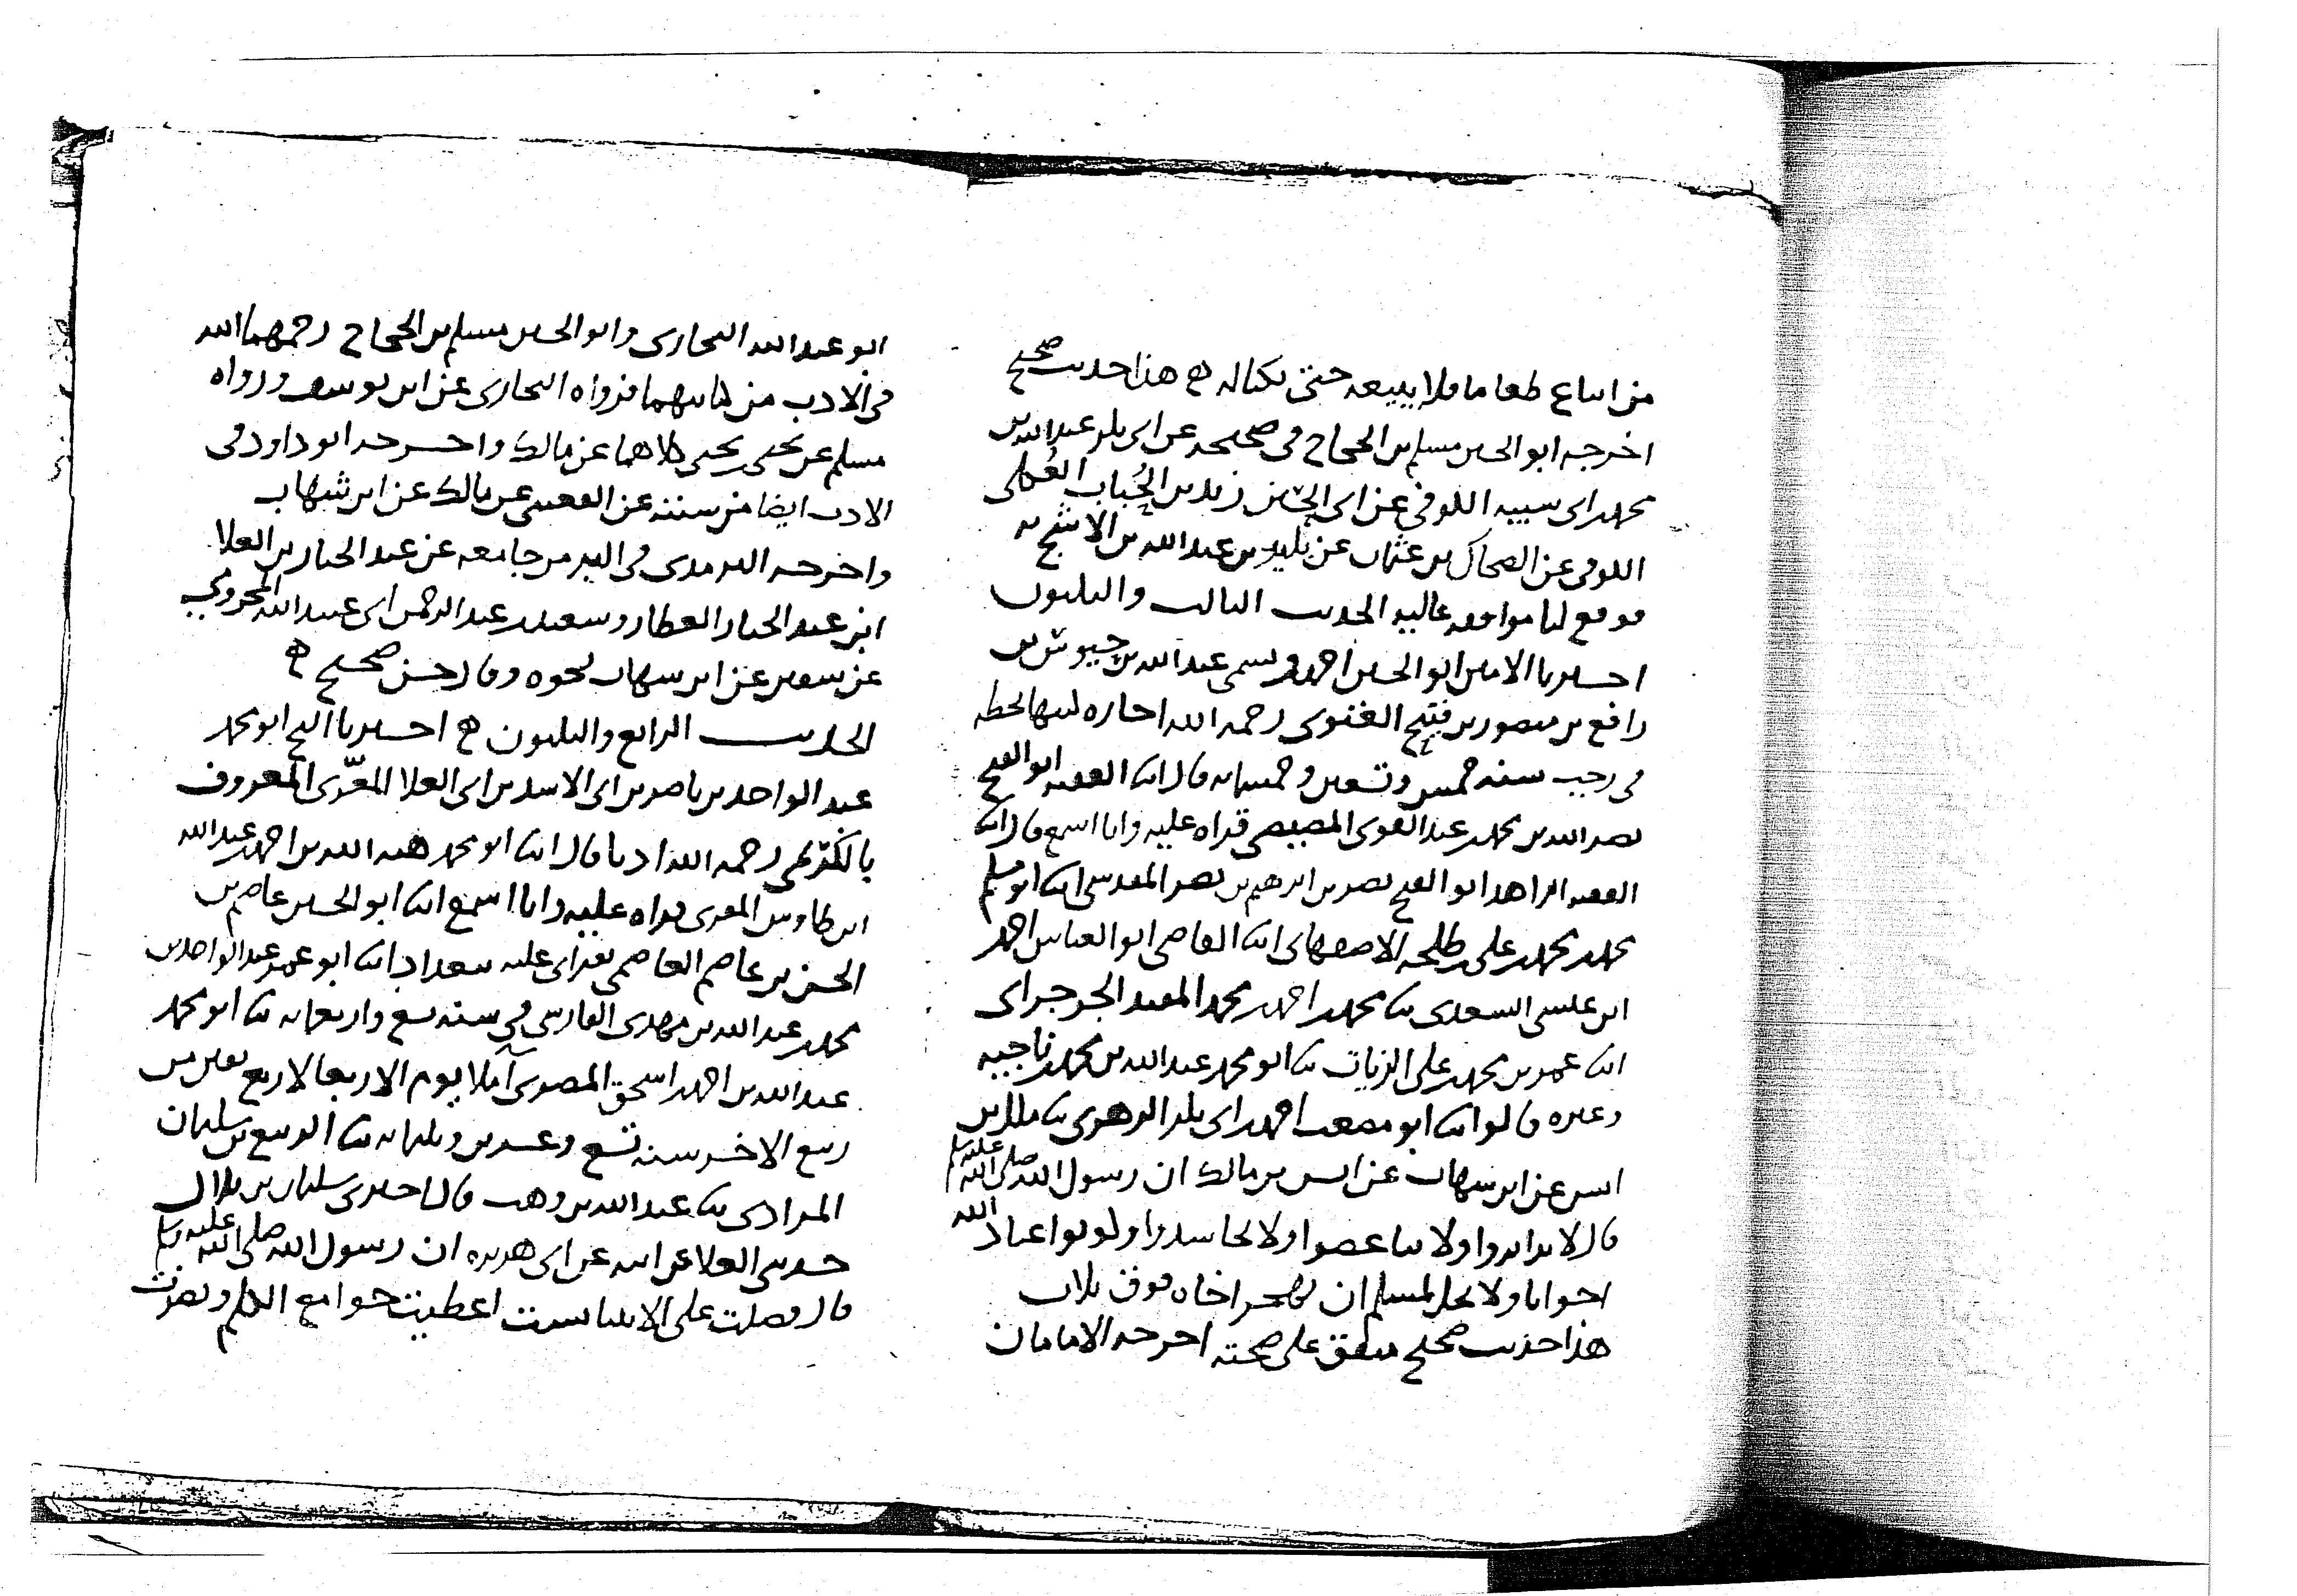 من ابتاع طعاما فلا يبيعه حتى يكتاله ه هذا حديث صحيح
اخرجه ابو الحسين مسلم بن الحجاج في صحيحه عن ابي بكر عبد الله بن
محمد بن ابي شيبة الكوفي عن ابي الحسين زيد بن الحُباب العُكلي
الكوفي عن الضحاك بن عثمان عن بكير بن عبد الله بن الاشج به
فوقع لنا موافقة عالية الحديث الثالث والثلثون
اخبرنا الامين ابو الحسين احمد ويسمى عبد الله بن حيوش بن
رافع بن منصور بن فتيح الغنوي رحمه الله اجازة كتبها لي بخطه
في رجب سنة خمس وتسعين وخمسمائة قال انا الفقيه ابو الفتح
نصر الله بن محمد بن عبد القوي المصيصي قراة عليه وانا اسمع قال انا
الفقيه الزاهد ابو الفتح نصر بن ابرهيم بن نصر المقدسي انا ابو مسلم
محمد بن محمد بن علي بن طلحة الاصفهاني انا القاضي ابو العباس احمد
ابن عيسى السعدي نا محمد بن احمد بن محمد المفيد الجرجراي
انا عمر بن محمد بن علي الزيات نا ابو محمد عبد الله بن محمد بن ناجية
وغيره قالوا انا ابو مصعب احمد بن ابي بكر الزهري نا ملك بن
انس عن ابن شهاب عن انس بن مالك ان رسول الله صلى الله عليه وسلم
قال لا تدابروا ولا تباغضوا ولا تحاسدوا وكونوا عباد الله
اخوانا ولا يحل لمسلم ان يهجر اخاه فوق ثلاث
هذا حديث صحيح متفق على صحته اخرجه الامامان
ابو عبد الله البخاري وابو الحسين مسلم بن الحجاج رحمهما الله
في الادب من كتابيهما فرواه البخاري عن ابن يوسف ورواه
مسلم عن يحيى بن يحيى كلاهما عن مالك واخرجه ابو داود في
الادب ايضا من سننه عن القعنبي عن مالك عن ابن شهاب
واخرجه الترمذي في البر من جامعه عن عبد الجبار بن العلا
ابن عبد الجبار العطار وسعيد بن عبد الرحمن ابي عبيد الله المخزومي
عن سفين عن ابن شهاب نحوه وقال حسن صحيح ه
الحديث الرابع والثلثون ه اخبرنا الشيخ ابو محمد
عبد الواحد بن ناصر بن ابي الاسد بن ابي العلا المقرّي المعروف
رحمه الله اذنا قال انا ابو محمد هبة الله بن احمد بن عبد الله
ابن طاوس المقري قراة عليه وانا اسمع انا ابو الحسين عاصم بن
الحسن بن عاصم العاصمي بقراتي عليه ببغداد انا ابو عمر عبد الواحد بن
محمد بن عبد الله بن مهدي الفارسي في سنة تسع واربعمائة نا ابو محمد
عبد الله بن احمد بن اسحق المصري املا يوم الاربعا لاربع بقين من
ربيع الاخر سنة تسع وعشرين وثلثمائة نا الربيع بن سليمان
المرادي نا عبد الله بن وهب قال اخبرني سليمان بن بلال
حدثني العلا عن ابيه عن ابي هريرة ان رسول الله صلى الله عليه وسلم
قال فضلت على الانبيا بست اعطيت جوامع الكلم ونصرت